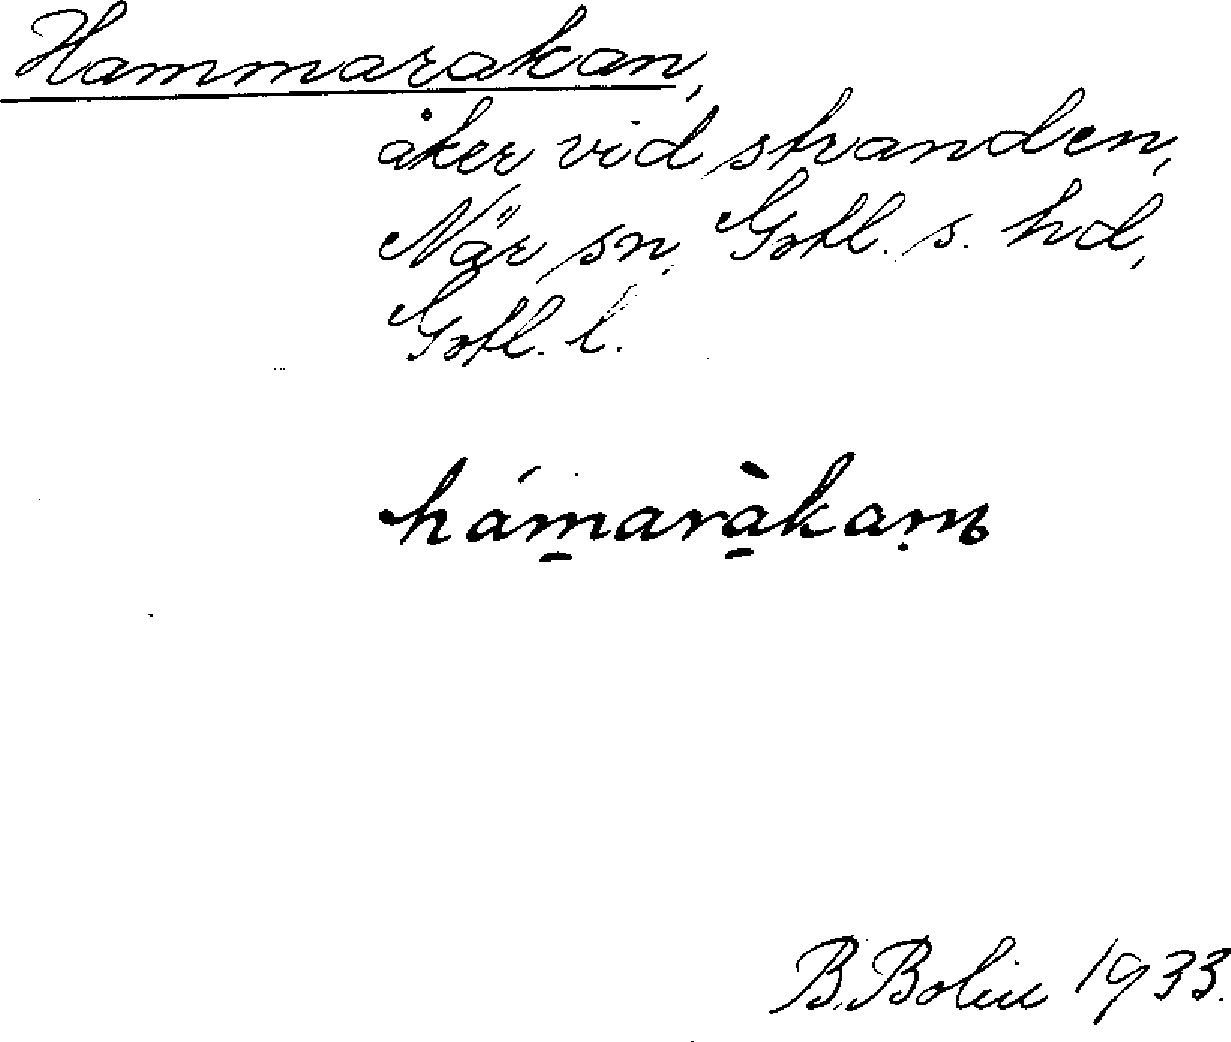 Hammarakan,
åker vid stranden,
När sn, Gotl. s. hd,
Gotl. l.
hámaràkam
B. Bolin 1933.